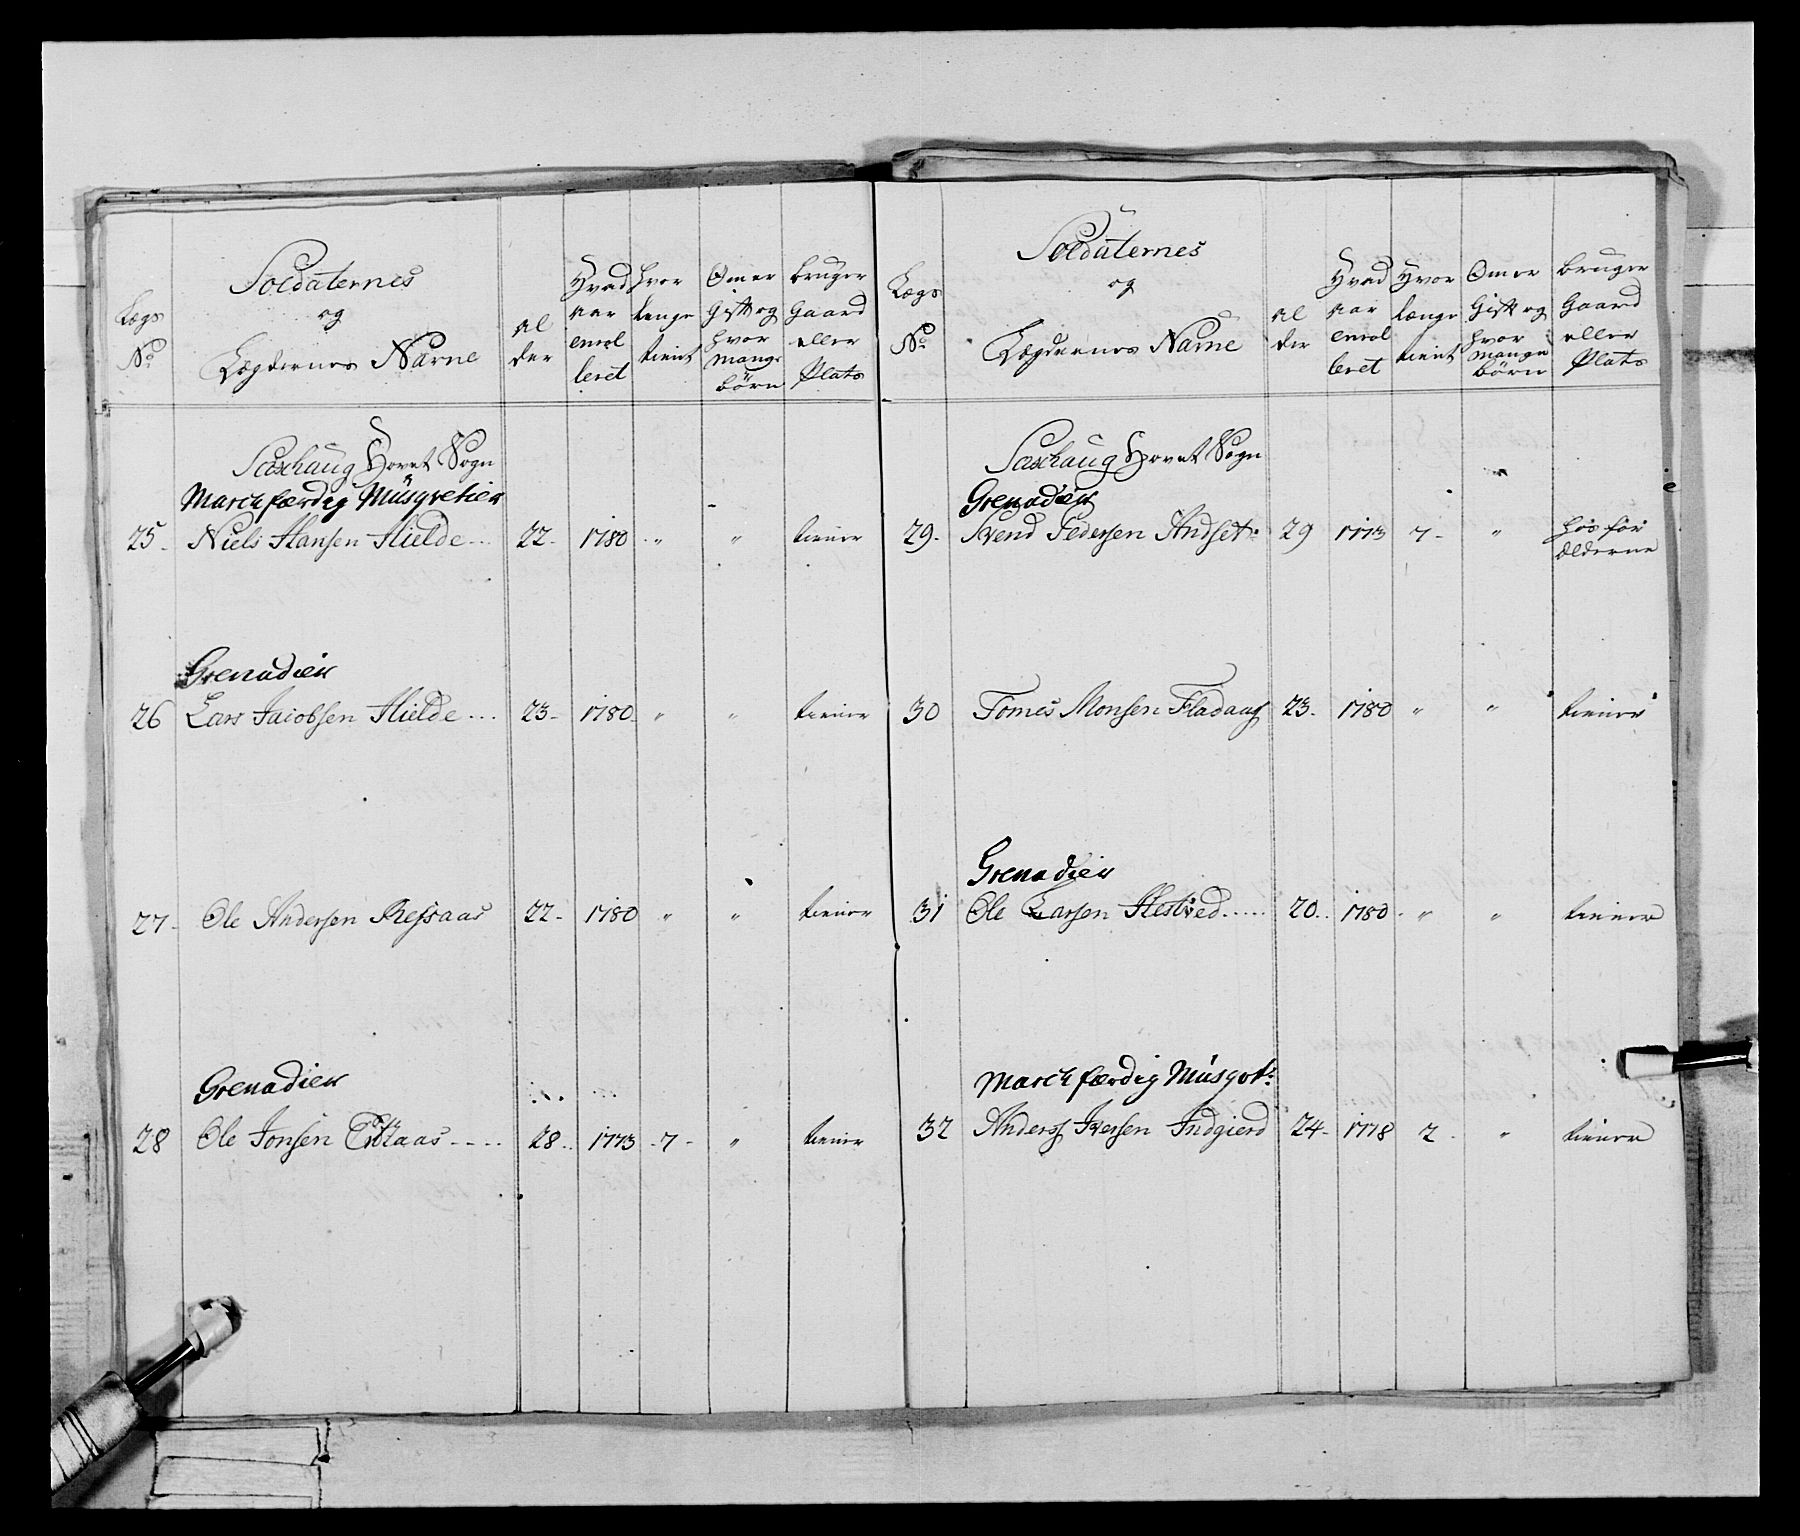 Soldaternes
og
Lægdernes Nafne
Lægs
No
Al
der
Hvad
aar
enrol
leret
Hvor
længe
tient
Om er
Gift og
hvor
mange
børn
bruger
Gaard
eller
Plats
Saxhaug Hovet Sogn
Marchfærdig Musqvetier
25. Niels Hansen Hielde... 22. 1780. " " tiener
Grenadier
26 Lars Jacobsen Hielde... 23. 1780. " " tiener
27. Ole Andersen Ressaas 22. 1780 " " tiener
Grenadier
28 Ole Jonsen .... 28.. 1773 .7. " tiener
Soldaternes
og
Lægdernes Nafne
Lægs
No
Al
der
Hvad
aar
enrol
leret
Hvor
længe
tient
Om er
Gift og
hvor
mange
børn
bruger
Gaard
eller
Plats
Saxhaug Hovet Sogn
Grenadier
29. Svend Pedersen Andset: 29 1773 7. " hos for
ælderne
30 Tomes Monsen Fladaas 23. 1780 " " tiener
Grenadier
31 Ole Larsen Hestved..... 20.. 1780. " " tiener
Marchfærdig Musqvt:
32 Anders Iversen Indgierd 24. 1778 2. " tiener